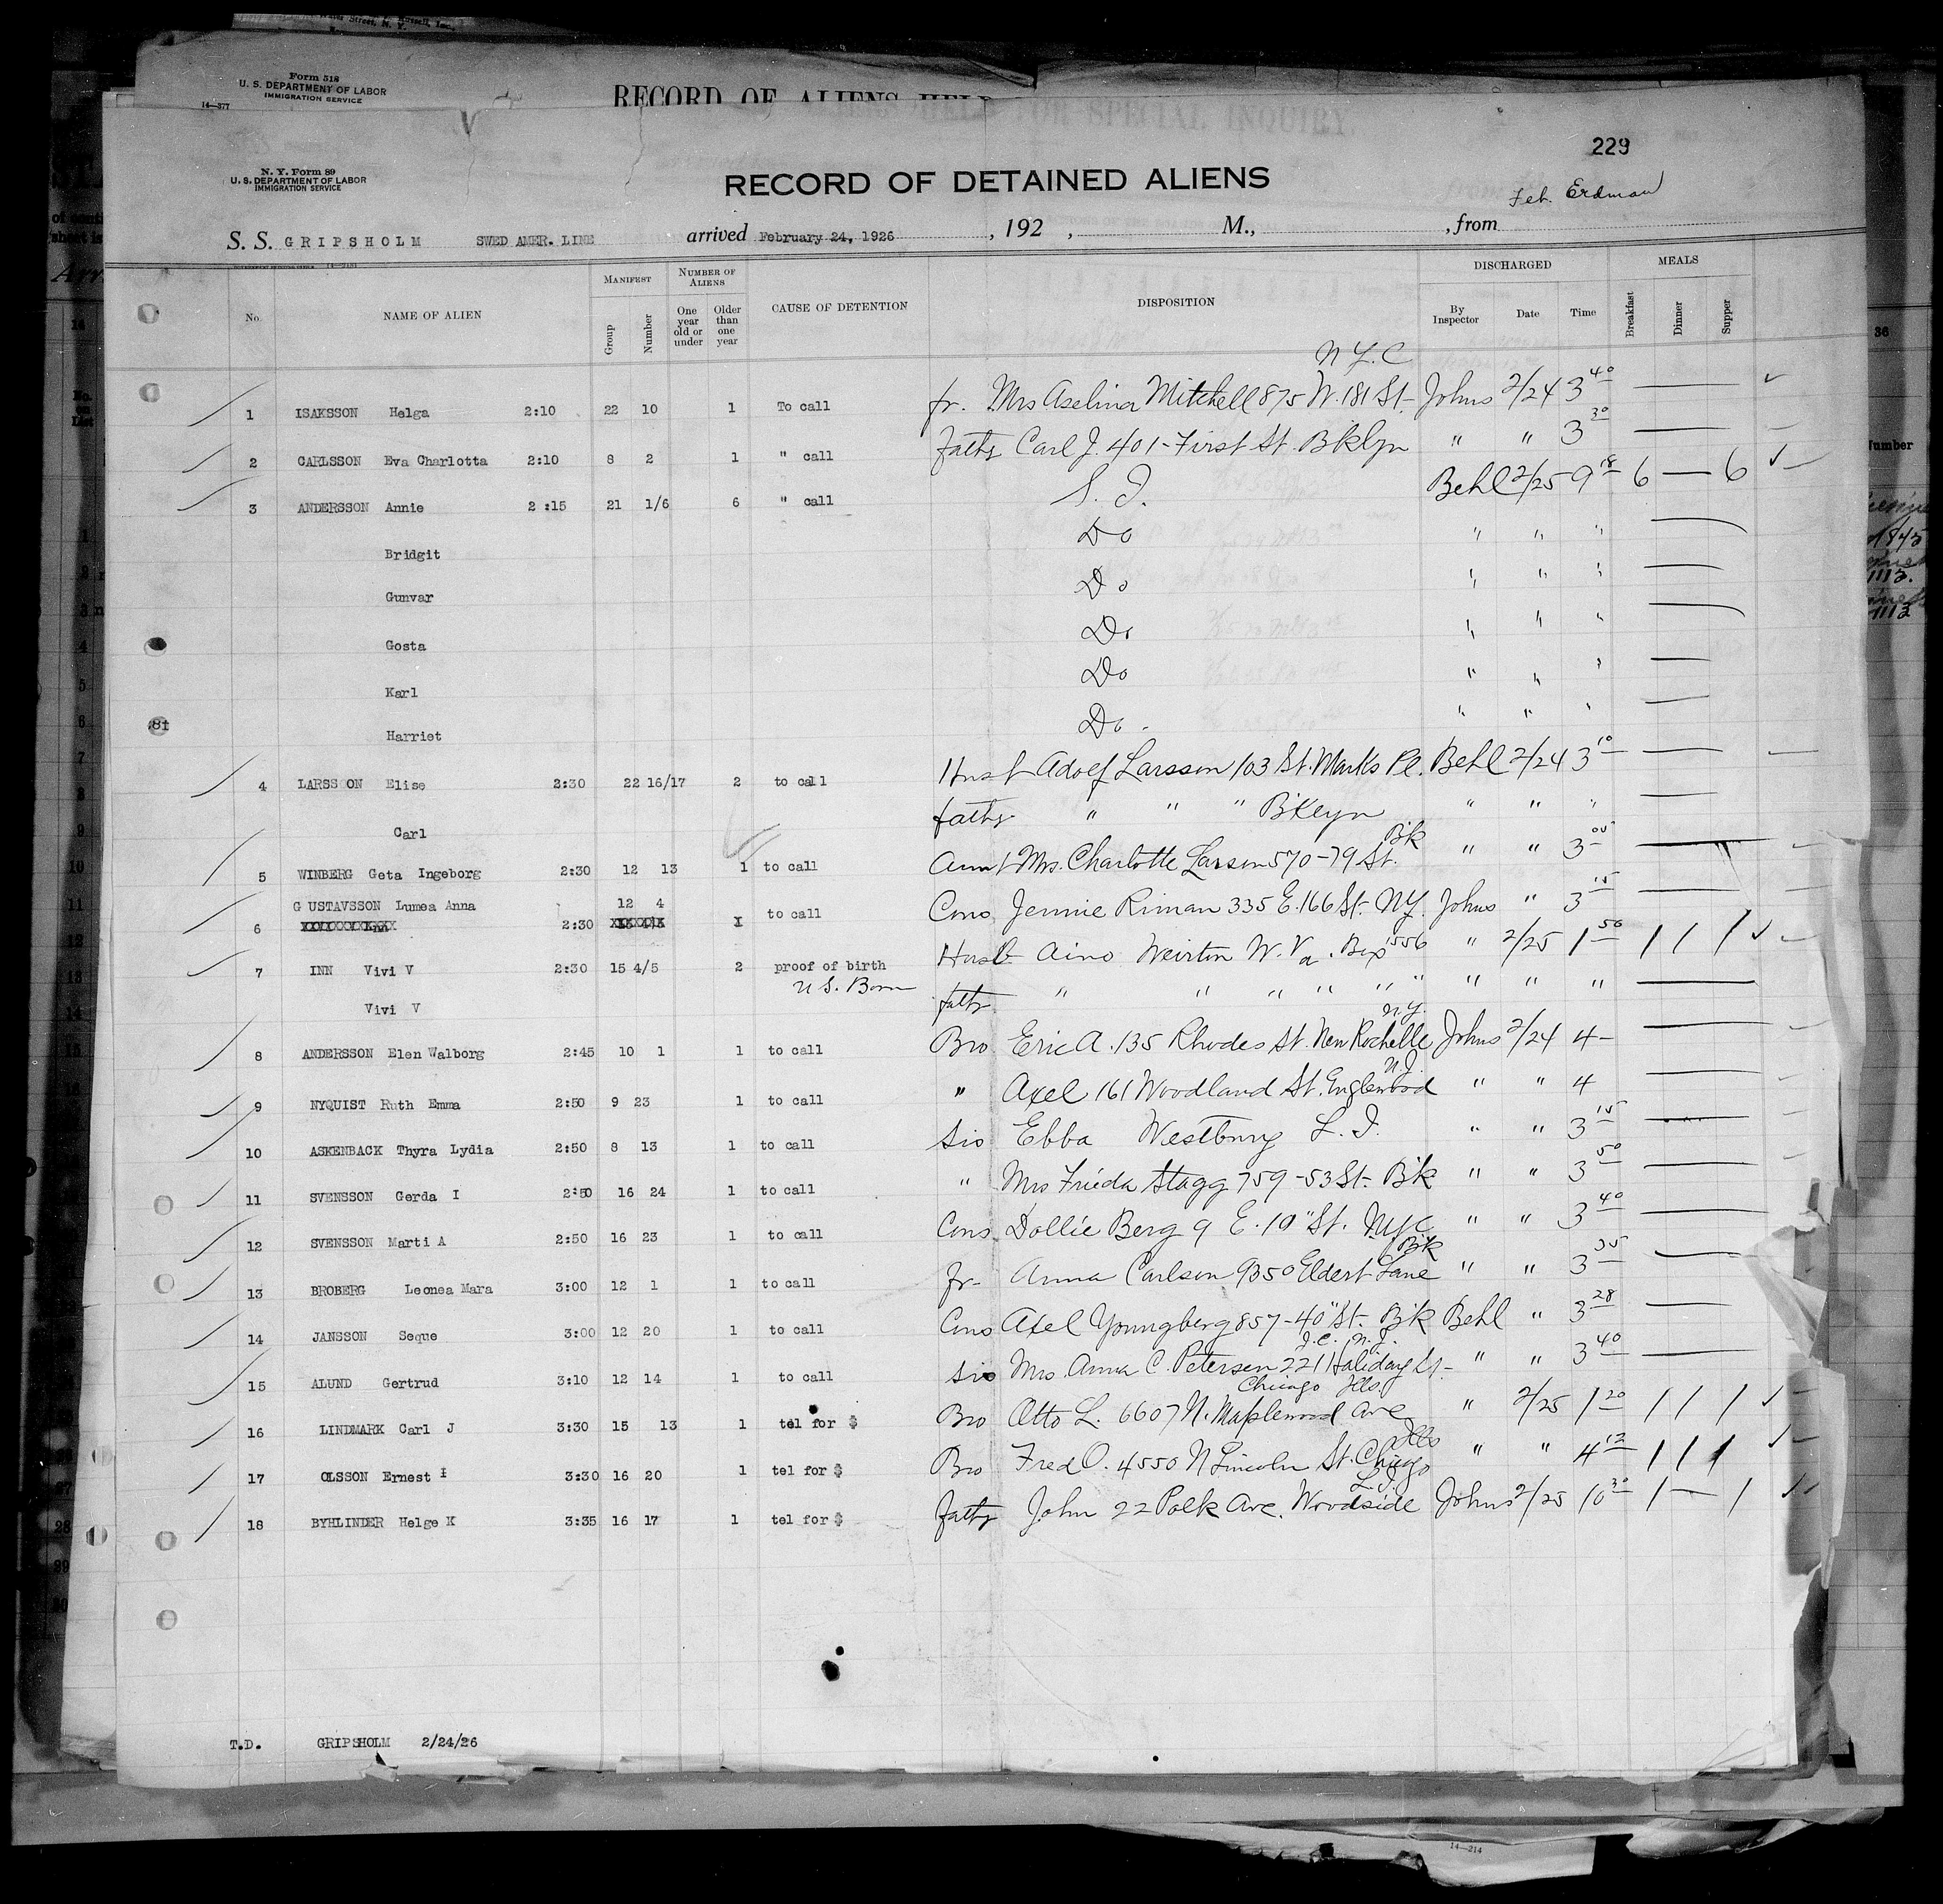 Form 518
U. S. DEPARTMENT OF LABOR
IMMIGRATION SERVICE
14—377
RECORD OF ALIENS HELD FOR SPECIAL INQUIRY.
229
N. Y. Form 89
U. S. DEPARTMENT OF LABOR
IMMIGRATION SERVICE
RECORD OF DETAINED ALIENS
Feb. Erdman
S. S. GRIPSHOLM SWED AMER. LINE arrived February 24, 1926, 192 , M., , from
No. NAME OF ALIEN MANIFEST Group Number NUMBER OF ALIENS One year old or under Older than one year CAUSE OF DETENTION DISPOSITION DISCHARGED By Inspector Date Time MEALS Breakfast Dinner Supper
N.Y.C
1 ISAKSSON Helga 2:10 22 10 1 To call fr. Mrs Aselina Mitchell 875 W. 181 St- Johns 2/24 3 40 — ✓
2 CARLSSON Eva Charlotta 2:10 8 2 1 " call fathr Carl J. 401-First St. Bklyn " " 3 30 —
3 ANDERSSON Annie 2:15 21 1/6 6 " call S. I. Behl 2/25 9 18 6 — 6 ✓
Bridgit Do " " " —
Gunvar Do " " " —
Gosta Do " " " —
Karl Do " " " —
Harriet Do - " " " —
4 LARSSON Elise 2:30 22 16/17 2 to call Husb Adolf Larsson 103 St. Marks Pl. Behl 2/24 3 10 —
Carl fathr " " " Bklyn " " " —
5 WINBERG Geta Ingeborg 2:30 12 13 1 to call Aunt Mrs. Charlotte Larson 570-79 St. Bk " " 3 00 —
G USTAVSSON Lumea Anna 12 4
6 2:30 1 to call Cous Jennie Riman 335 E. 166 St. NY. Johns " 3 15 —
7 INN Vivi V 2:30 15 4/5 2 proof of birth Husb Aino Weirton W. Va. Box 1556 " 2/25 1 50 / / / ✓
U S. Born
Vivi V fathr " " " " " " " " " —
8 ANDERSSON Elen Walborg 2:45 10 1 1 to call Bro Eric A. 135 Rhodes St. New Rochelle N.Y. Johns 2/24 4- —
9 NYQUIST Ruth Emma 2:50 9 23 1 to call " Axel 161 Woodland St. Englewood N.J. " " 4 —
10 ASKENBACK Thyra Lydia 2:50 8 13 1 to call Sis Ebba Westbury L. I. " " 3 15 —
11 SVENSSON Gerda I 2:50 16 24 1 to call " Mrs Frieda Stagg 759-53 St. Bk " " 3 50 —
12 SVENSSON Marti A 2:50 16 23 1 to call Cous Dollie Berg 9 E. 10" St. NYC " " 3 40 —
13 BROBERG Leonea Mara 3:00 12 1 1 to call fr- Anna Carlson 9350 Eldert Lane Bk " " 3 35 —
14 JANSSON Seque 3:00 12 20 1 to call Cous Axel Youngberg 857-40" St. Bk Behl " 3 28 —
15 ALUND Gertrud 3:10 12 14 1 to call Sis Mrs. Anna C. Petersen 221 Haliday St- J.C. N.J. " " 3 40 —
16 LINDMARK Carl J 3:30 15 13 1 tel for $ Bro Otto L. 6607 N. Maplewood Ave Chicago Ills. " 2/25 1 20 / / / ✓
17 OLSSON Ernest I 3:30 16 20 1 tel for $ Bro Fred O. 4550 N Lincoln St. Chicago Ills " " 4 12 / / / ✓
18 BYHLINDER Helge K 3:35 16 17 1 tel for $ fathr John 22 Polk Ave. Woodside L.I. Johns 2/25 10 30 / — / ✓
T.D. GRIPSHOLM 2/24/26
14—214